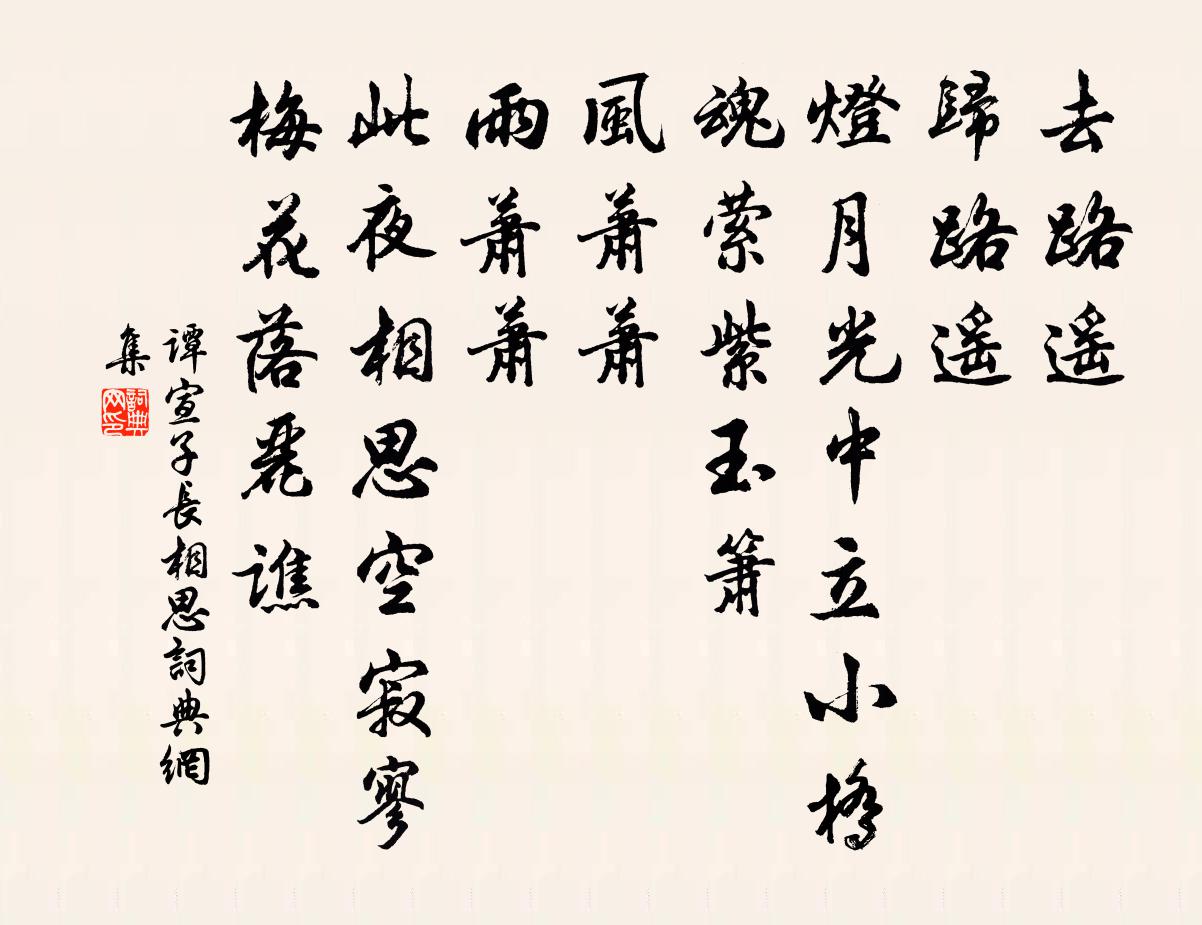 去路遥
歸路遥
燈月光中立小橋
魂萦紫玉箫
風蕭蕭
雨蕭蕭
此夜相思空寂寥
梅花落麗譙
谭宣子長相思詞典網
集
詞典
网印